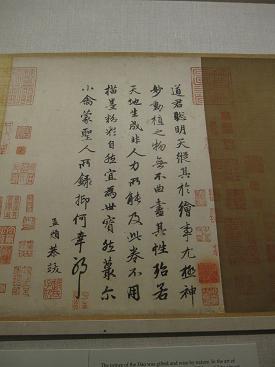 道君聰明天縱其於繪事尤極神
妙動植之物無不曲盡其性殆若
天地生成非人力所能及此卷不用
描墨粉彩自然宜為世寶然蕞尒
小禽蒙聖人所錄抑何幸耶
孟頫恭跋
of the Dao was gifted and wise by nature. In the art of